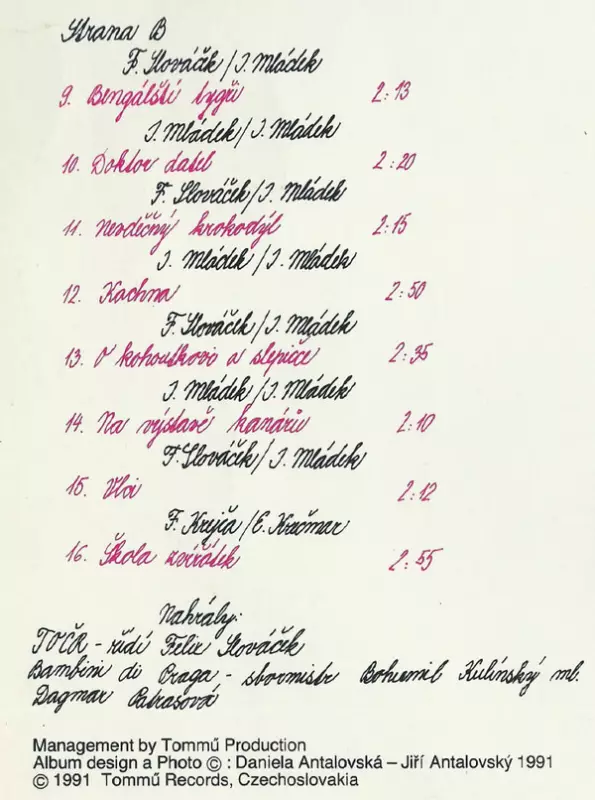 Strana B
F. Slováček / I. Mládek
9. Bengálští tygři 2:13
I. Mládek / I. Mládek
10. Doktor datel 2:20
F. Slováček / I. Mládek
11. Nevděčný krokodýl 2:15
I. Mládek / I. Mládek
12. Kachna 2:50
F. Slováček / I. Mládek
13. O kohoutkovi a slepičce 2:35
I. Mládek / I. Mládek
14. Na výstavě kanárů 2:10
F. Slováček / I. Mládek
15. Vlci 2:12
F. Krejča / E. Krečmar
16. Škola zvířátek 2:55
Nahrály:
TOČR - řídí Felix Slováček
Bambini di Praga - sbormistr Bohumil Kulínský ml.
Dagmar Patrasová
Management by Tommű Production
Album design a Photo © : Daniela Antalovská – Jiří Antalovský 1991
© 1991 Tommű Records, Czechoslovakia